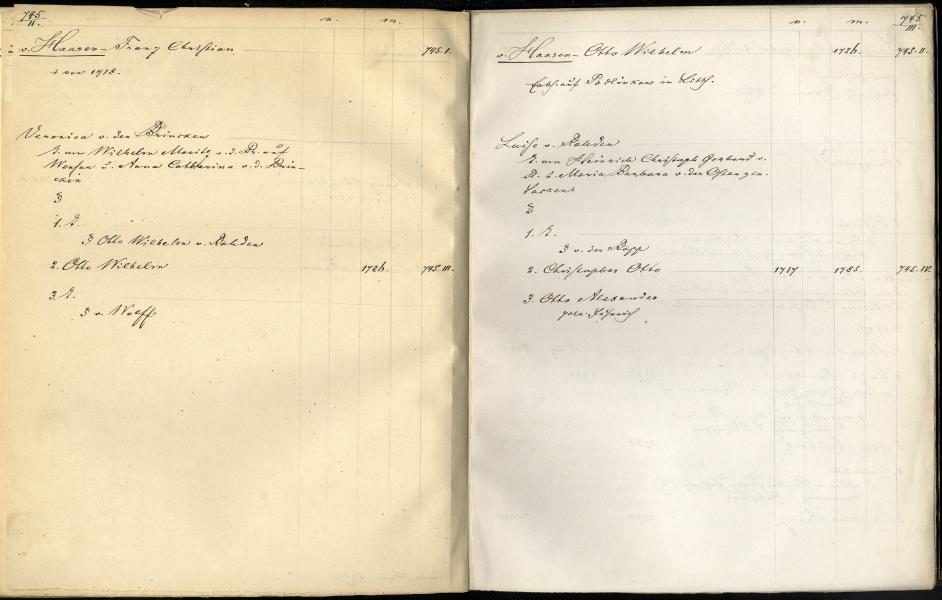 745
II.
n. m.
v. Haaren - Franz Christian 745.I.
† vor 1718.
Veronica v. den Brincken
T. von Wilhelm Moritz v. d. Br. auf
Wensau u. Anna Catharina v. d. Brin-
cken
1. T.
Otto Wilhelm v. Rohden
2. Otto Wilhelm 1726. 745.III.
3. T.
v. Wolff.
745
III.
n. m.
v. Haaren - Otto Wilhelm 1726. 745.II.
Erbh. auf Podlinkow in Litth.
Luise v. Rohden
T. von Heinrich Christoph Gerhard v.
R. u. Maria Barbara v. der Osten gen.
Sacken
1. T.
v. der Ropp
2. Christopher Otto 1717 1785. 745.IV.
3. Otto Alexander
poln.